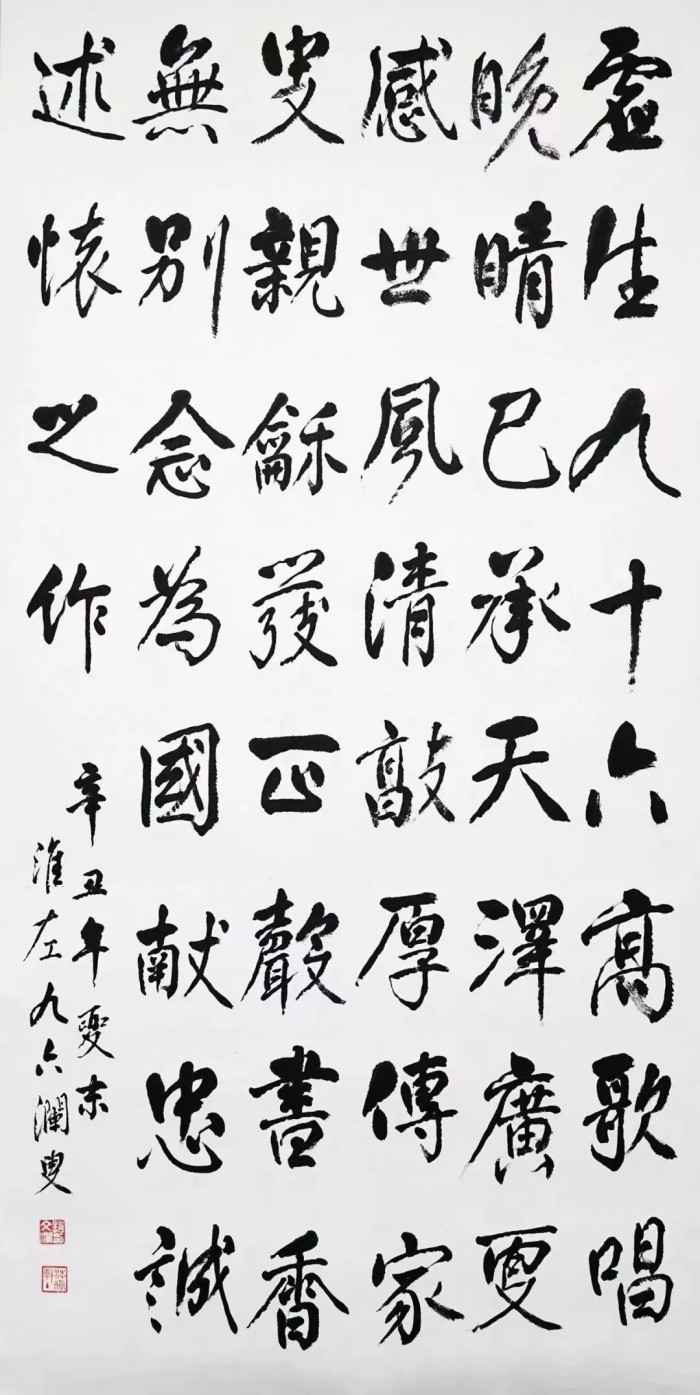 虛生九十六高歌唱
晚晴已承天澤廣更
感世風清敲厚傳家
叟親龢發正聲書香
無別念為國献忠誠
述懷之作
辛丑年夏末
淮左九六瀾叟